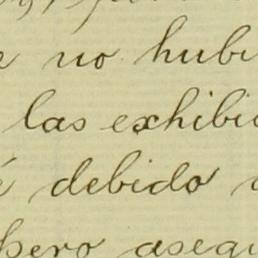 e no hubi
las exhibi
é debido
pero asegu